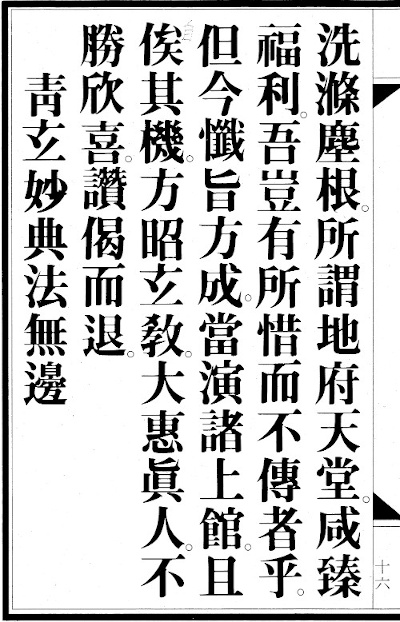 洗滌塵根。所謂地府天堂。咸臻
福利。吾豈有所惜而不傳者乎。
但今懺旨方成。當演諸上館。且
俟其機。方昭玄教。大惠眞人。不
勝欣喜。讚偈而退。
青玄妙典法無邊
十六